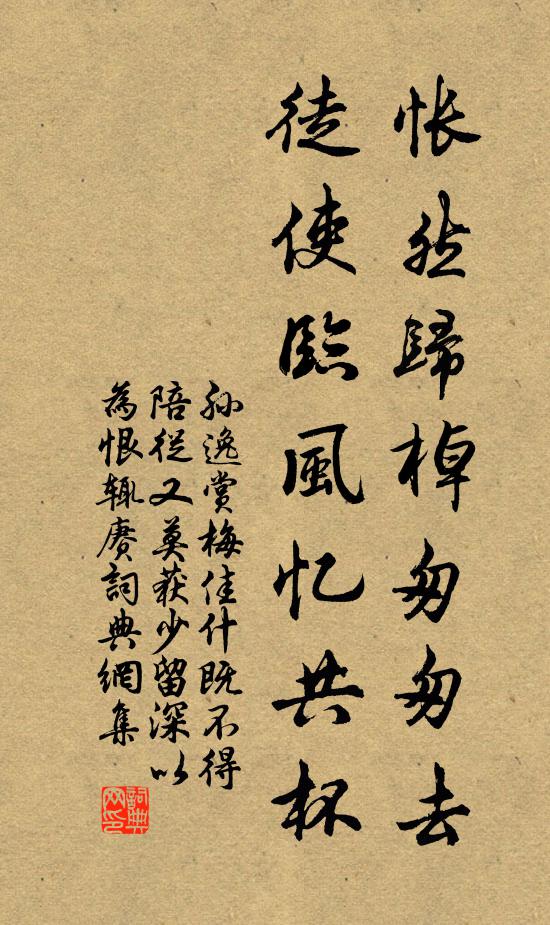 悵然歸棹匆匆去
徒使臨風忆共杯
孙逸赏梅佳什既不得
陪從又莫获少留深以
為恨辄赓詞典網集
詞典网印